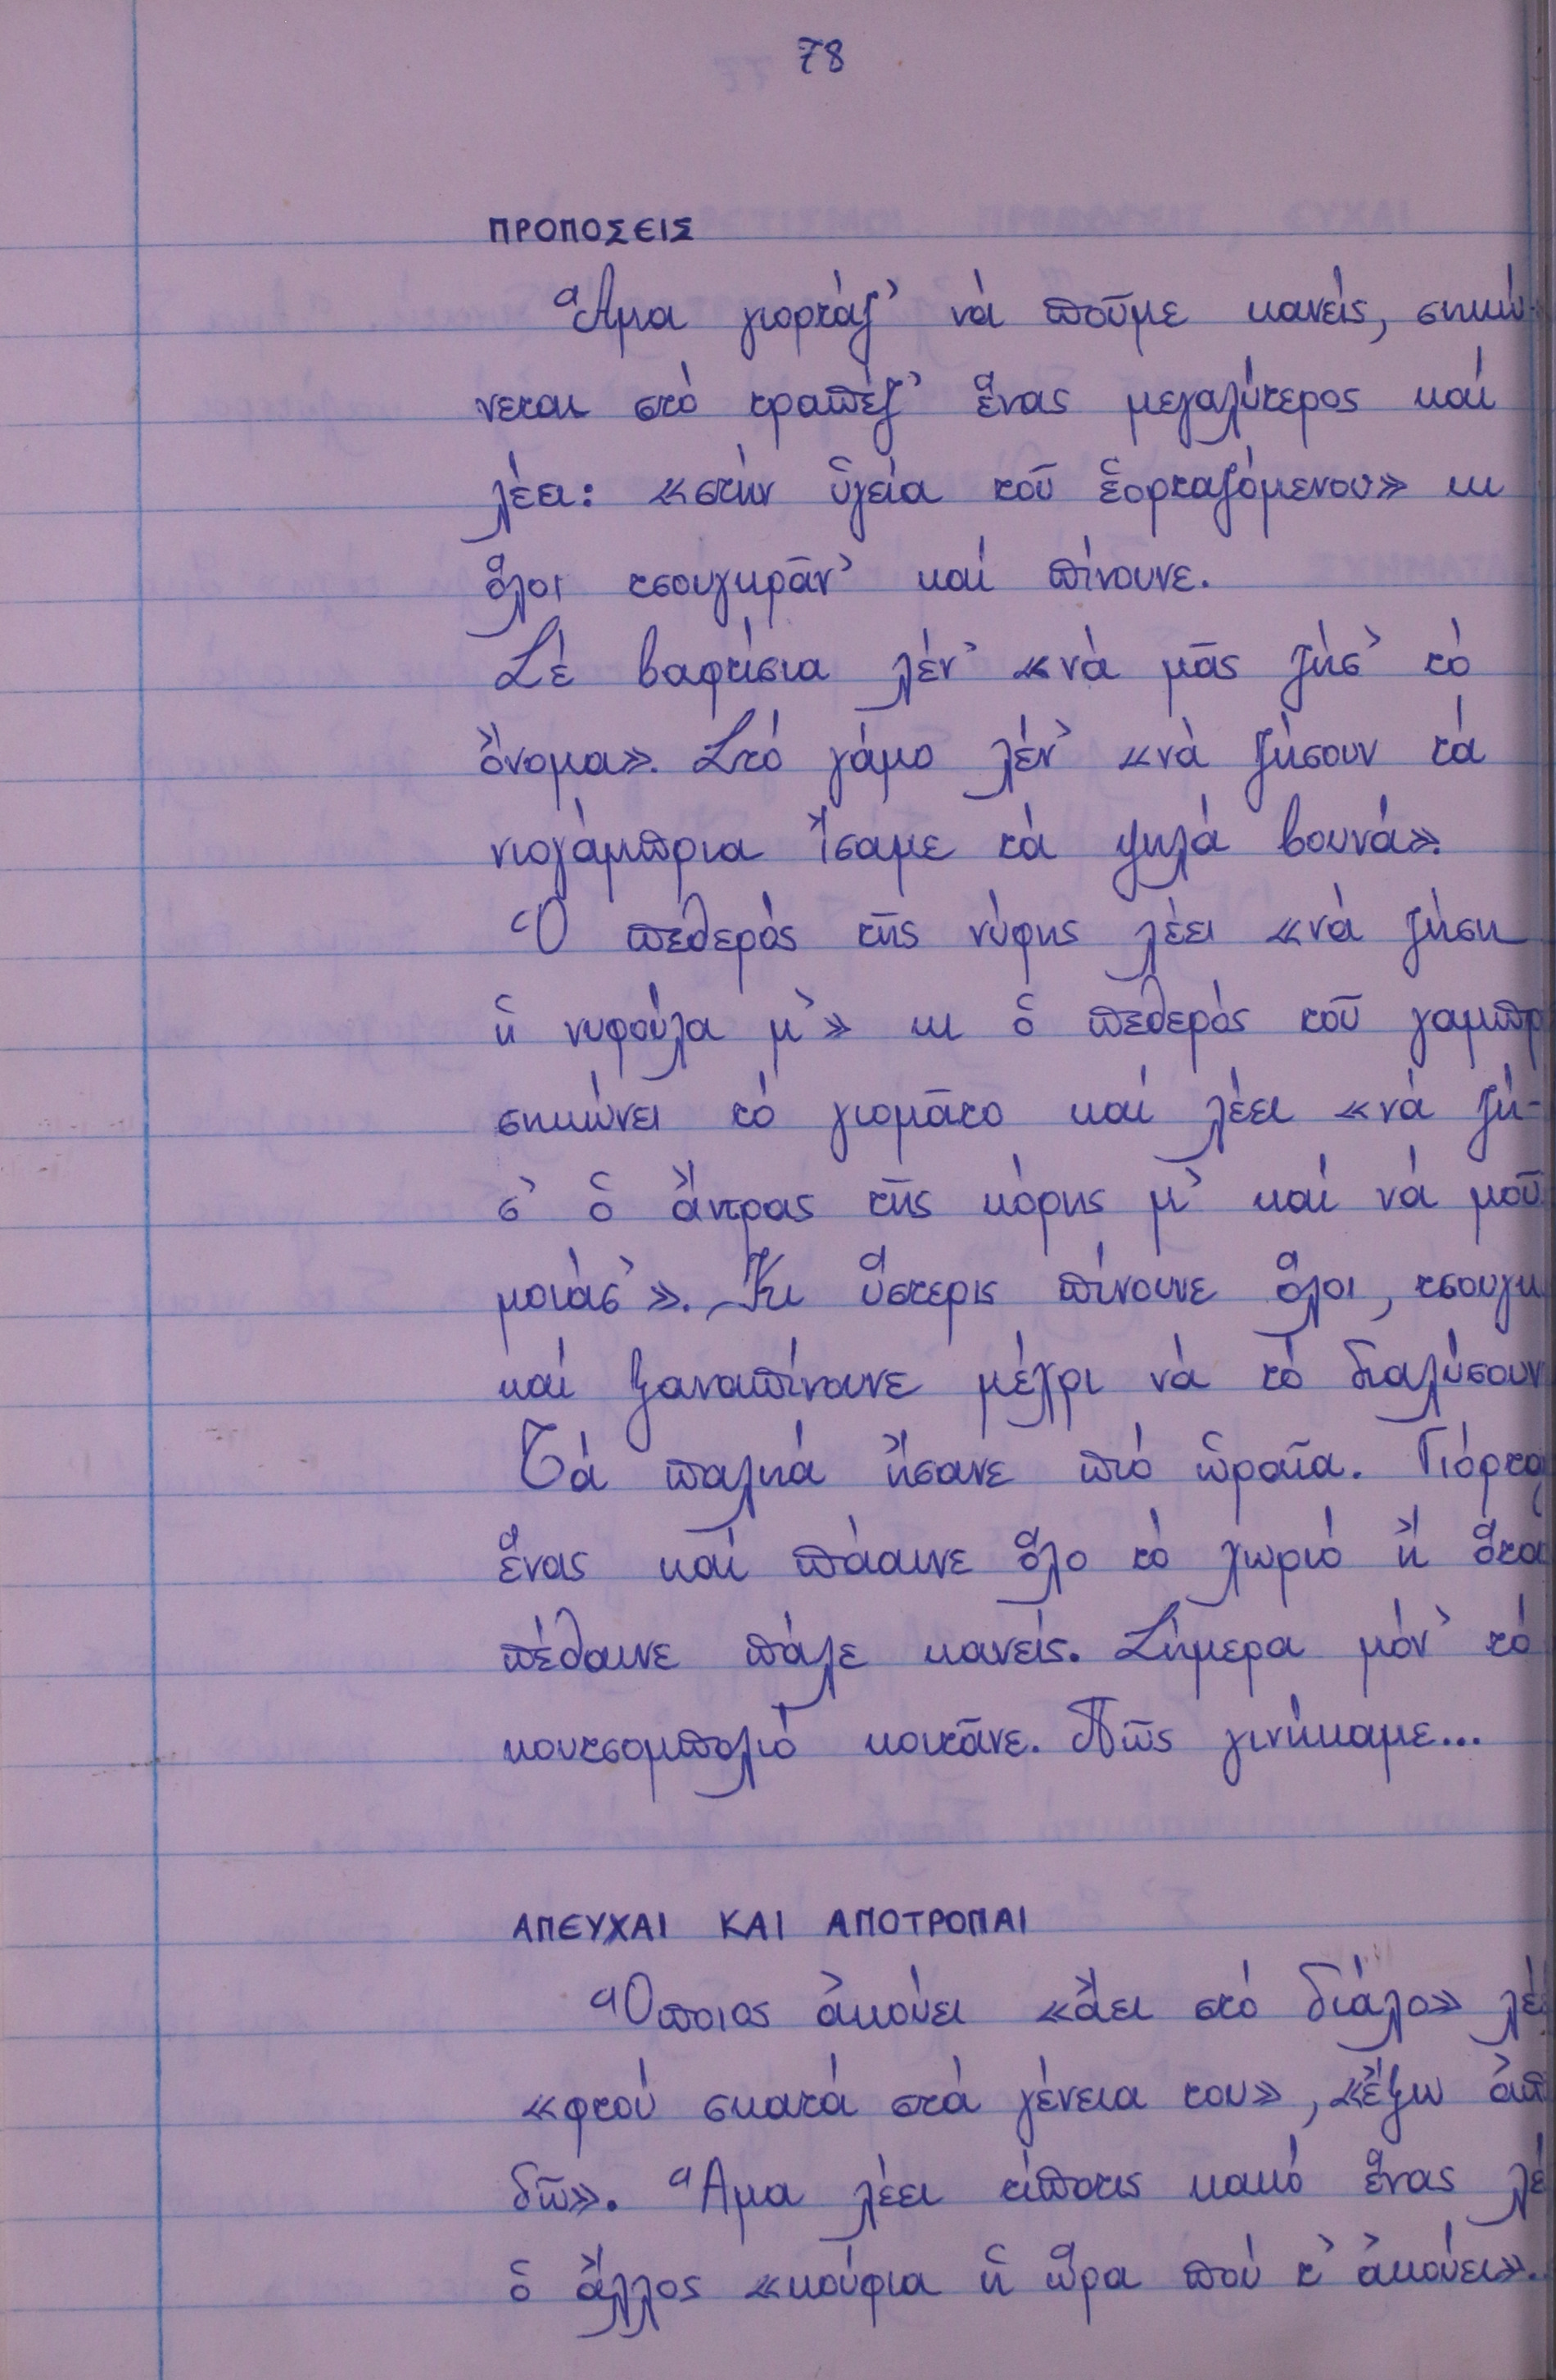 78
ΠΡΟΠΟΣΕΙΣ
Ἅμα γιορτάζ' νά ποῦμε κανείς, σηκώ-
νεται στό τραπέζ' ἕνας μεγαλύτερος καί
λέει: «στήν ὑγεία τοῦ ἑορταζόμενου» κι
ὅλοι τσουγκρᾶν' καί πίνουνε.
Σέ βαφτίσια λέν' «νά μᾶς ζήσ' τό
ὄνομα». Στό γάμο λέν' «νά ζήσουν τά
νιογάμπρια ἴσαμε τά ψηλά βουνά».
Ὁ πεθερός τῆς νύφης λέει «νά ζήση
ἡ νυφούλα μ'» κι ὁ πεθερός τοῦ γαμπρ
σηκώνει τό γιομᾶτο καί λέει «νά ζή-
σ' ὁ ἄντρας τῆς κόρης μ' καί νά μοῦ
μοιάσ'». Κι ὕστερις πίνουνε ὅλοι, τσουγκ
καί ξαναπίνουνε μέχρι νά τό διαλύσουν
Τά παλιά ἤσανε πιό ὡραῖα. Γιόρτα
ἕνας καί πάαινε ὅλο τό χωριό ἤ ὅτα
πέθαινε πάλε κανείς. Σήμερα μόν' τό
κουτσομπολιό κοιτᾶνε. Πῶς γινήκαμε...
ΑΠΕΥΧΑΙ ΚΑΙ ΑΠΟΤΡΟΠΑΙ
Ὅποιος ἀκούει «ἄει στό διάλο» λέ
«φτού σκατά στά γένεια του», «ἔξω ἀπ
δῶ». Ἅμα λέει τίποτις κακό ἕνας λέ
ὁ ἄλλος «κούφια ἡ ὥρα πού τ' ἀκούει».